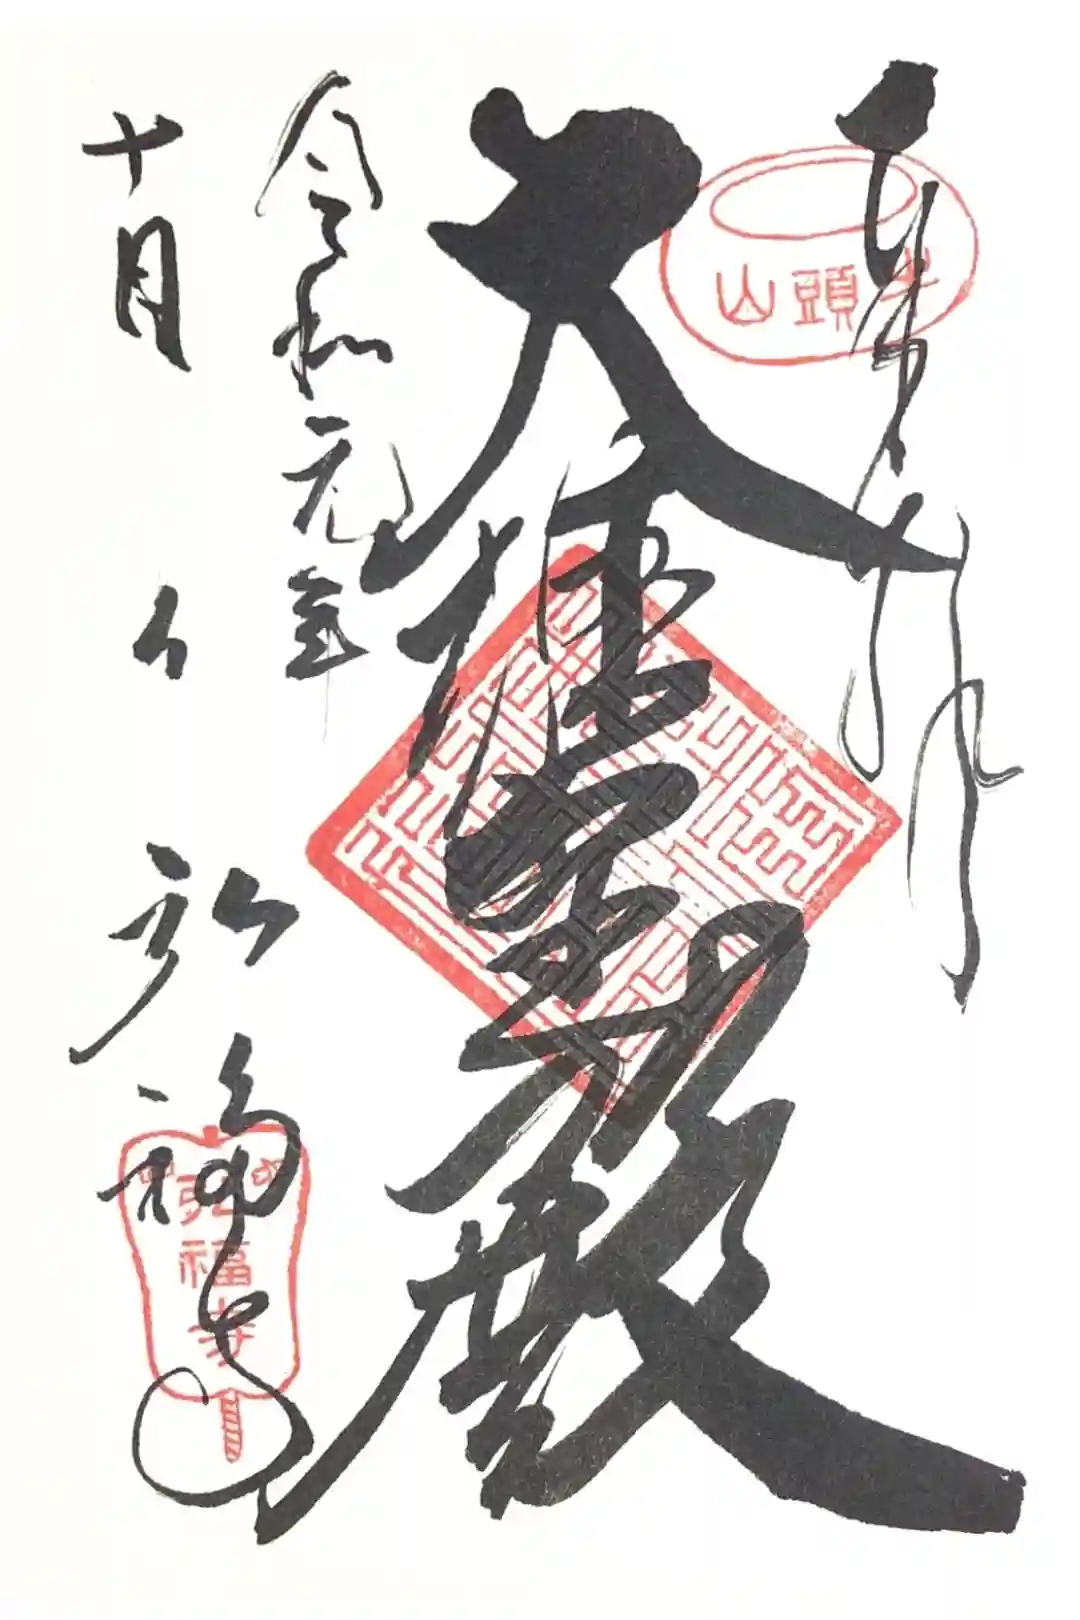 奉拝
牛頭山
大雄寶殿
令和元年
十月 日 弘福寺
弘福寺